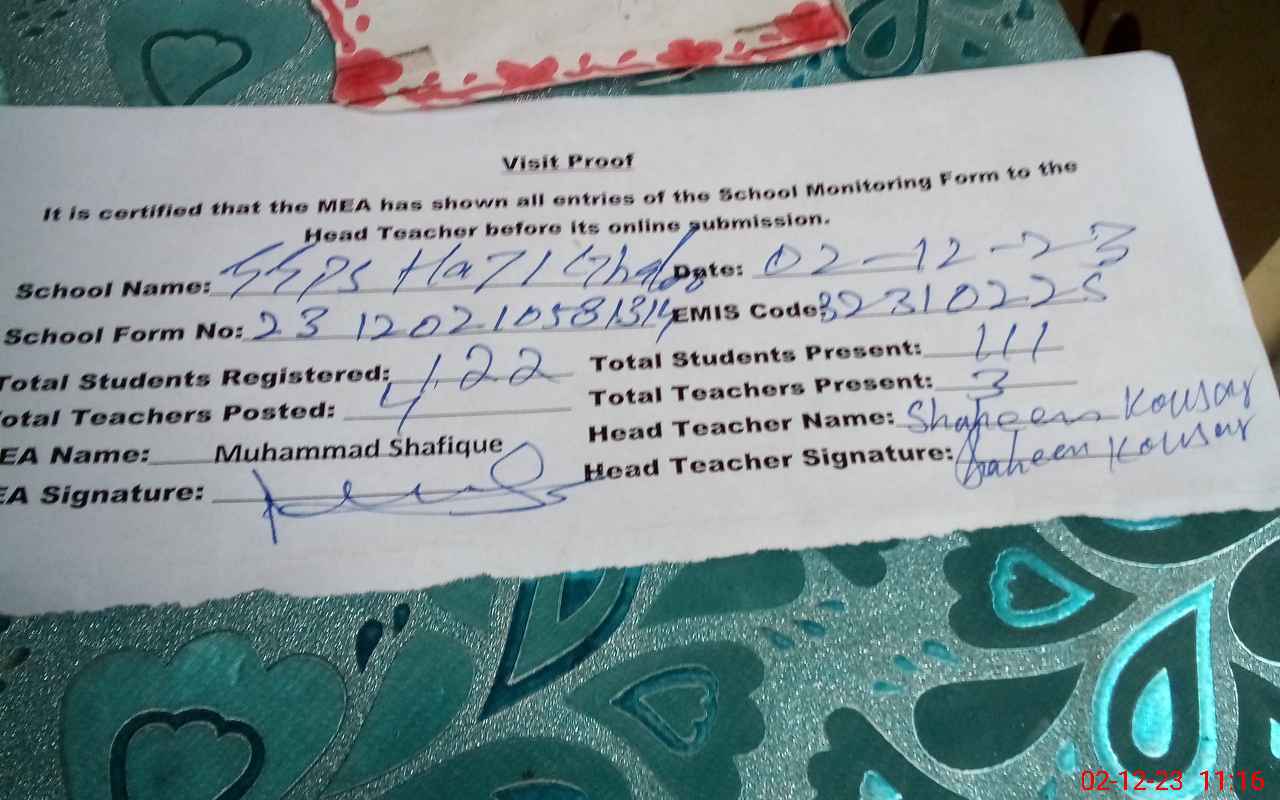 Visit Proof
It is certified that the MEA has shown all entries of the School Monitoring Form to the
Head Teacher before its online submission.
School Name: Date: 02-12-23
School Form No: EMIS Code: 32310225
Total Students Registered: 122 Total Students Present: 111
otal Teachers Posted: 4 Total Teachers Present: 3
EA Name: Muhammad Shafique Head Teacher Name: Shaheen Kousar
EA Signature: Head Teacher Signature: Shaheen Kousar
02-12-23 11:16